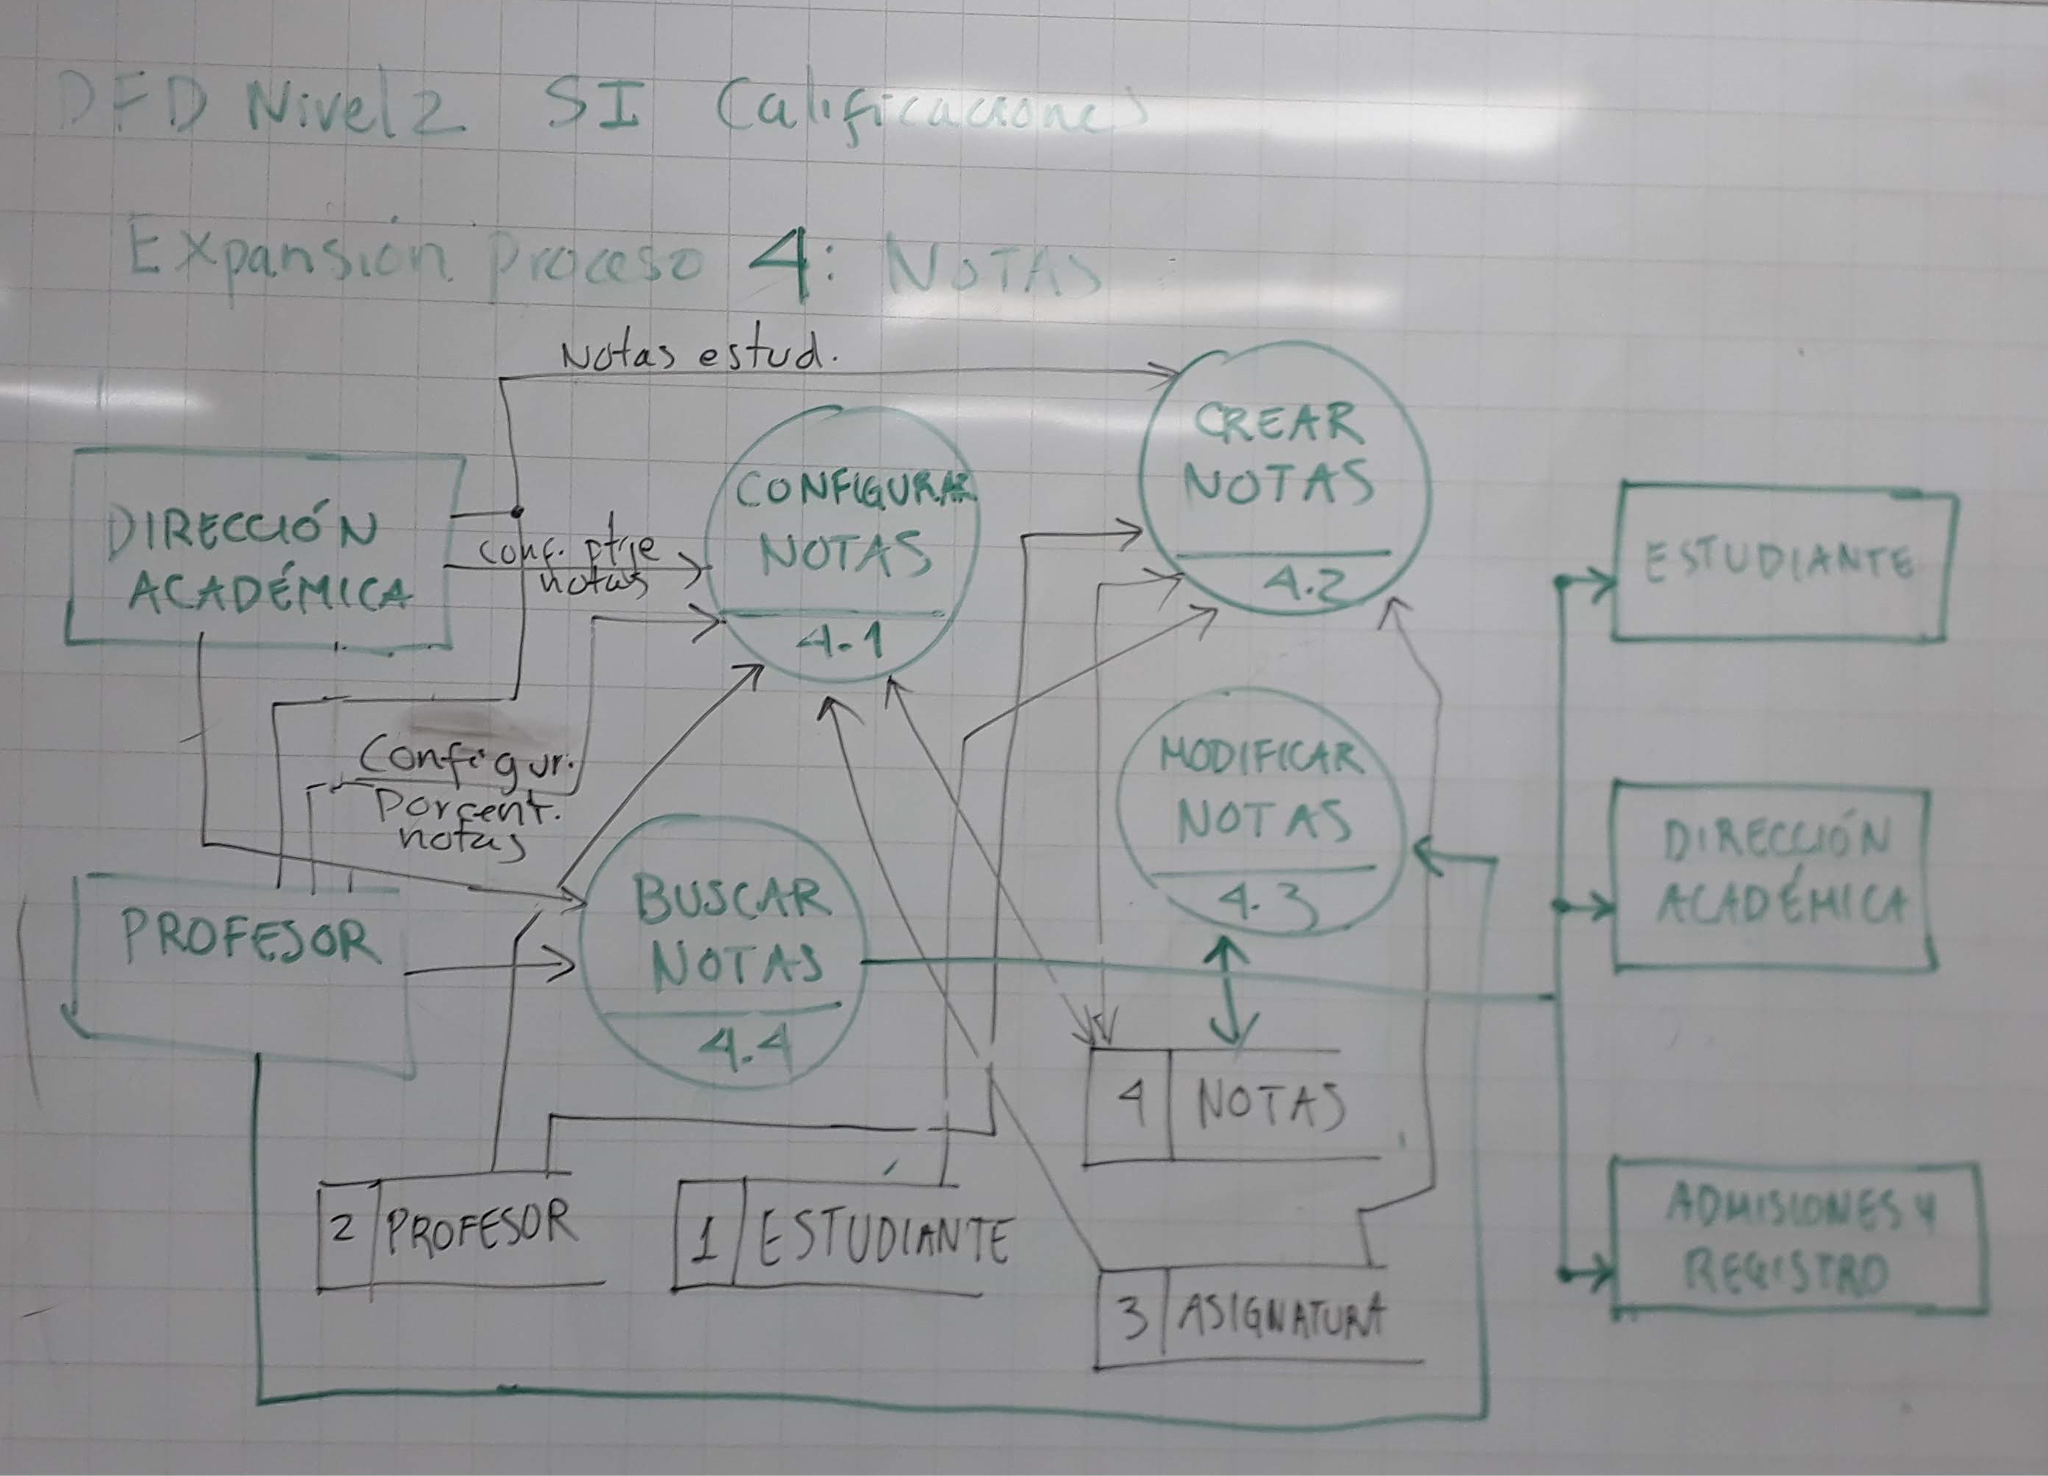 DFD Nivel 2 SI Calificaciones
Expansión proceso 4: NOTAS
Notas estud.
CREAR
NOTAS
4.2
CONFIGURAR
NOTAS
4.1
DIRECCIÓN
ACADÉMICA
conf. ptje
notas
ESTUDIANTE
Configur.
Porcent.
notas
MODIFICAR
NOTAS
4.3
DIRECCIÓN
ACADÉMICA
PROFESOR
BUSCAR
NOTAS
4.4
4 NOTAS
2 PROFESOR
1 ESTUDIANTE
3 ASIGNATURA
ADMISIONES Y
REGISTRO